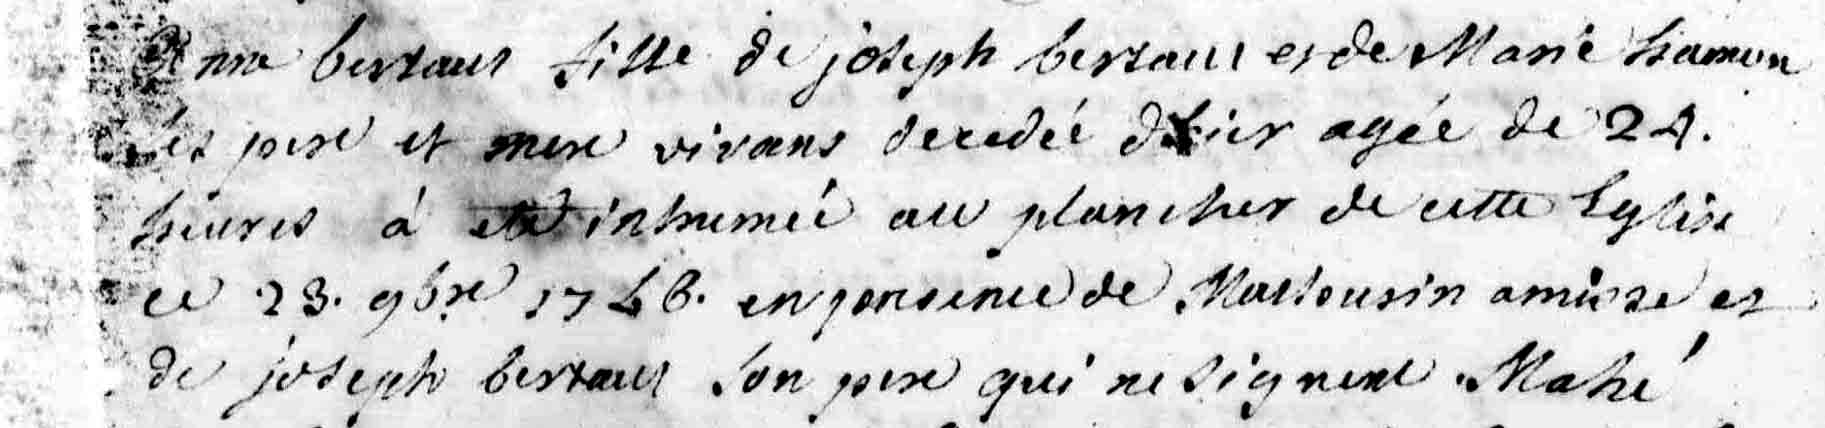 Anne bertaut fille de joseph bertaut et de Marie hamon
ses pere et mere vivans decedée d'hier agée de 24.
heures à eté inhumée au plancher de cette Eglise
ce 23. 9bre 1746. en presence de Mathurin et
de joseph bertaut son pere qui ne signent. Mahé